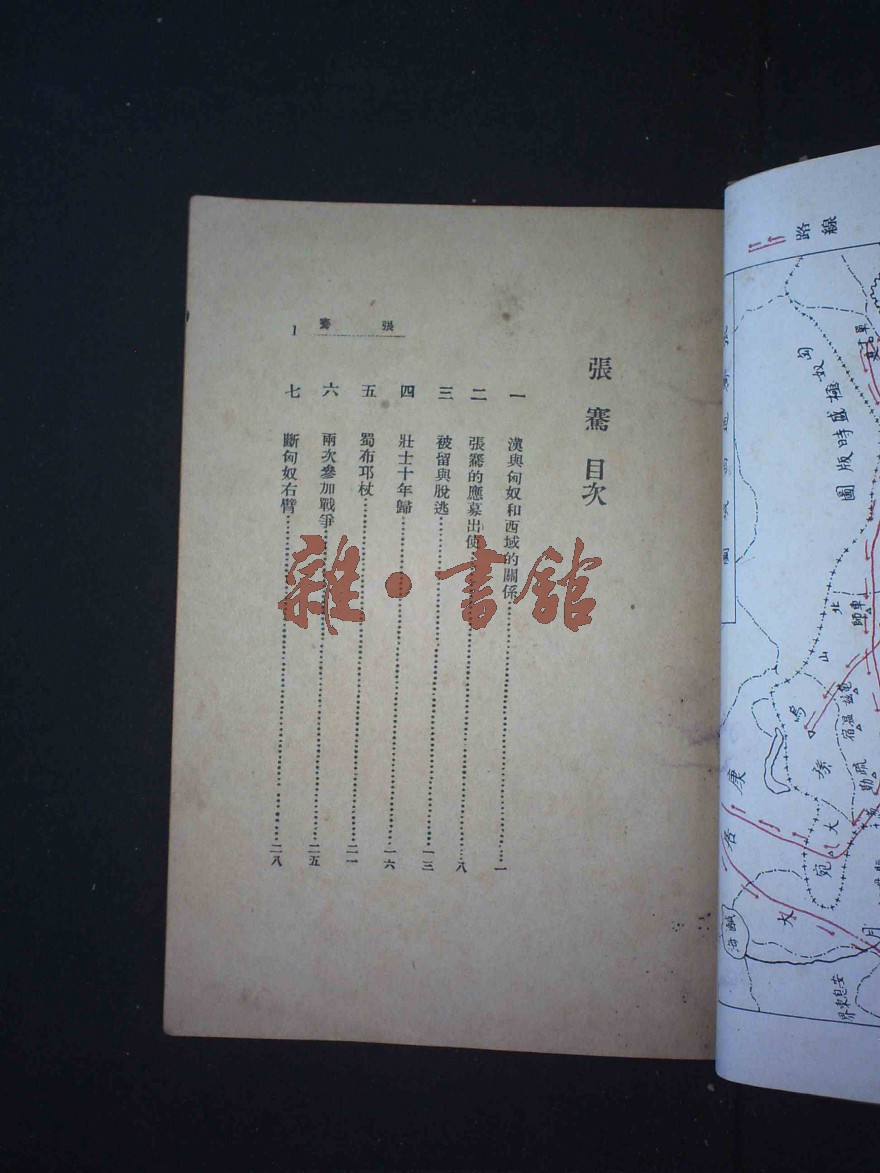 張騫目次
一 漢與匈奴和西域的關係……一
二 張騫的應募出使……八
三 被留與脫逃……一三
四 壯士十年歸……一六
五 蜀布邛杖……二一
六 兩次參加戰爭……二五
七 斷匈奴右臂……二八
張騫
1
雜·書館
路線
匈奴極盛時版圖
北山
車師
烏
溫宿
疏勒
康居
大宛
鹹海
大月
安息東界